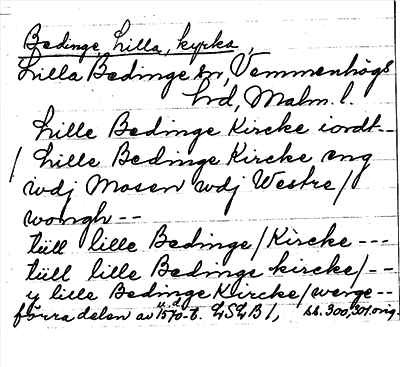 Bedinge, Lilla, kyrka,
Lilla Bedinge sn, Vemmenhögs
hd, Malm. l.
Lille Bedinge Kircke iordt--
/ Lille Bedinge Kircke eng
wdj Mosen wdj Westre /
wongh--
tüll lille Bedinge / Kircke ---
tüll lille Bedinge kircke / --
y lille Bedinge Kircke / werge--
förra delen av 1570-t. LSLB 1, ss. 300, 301 orig.